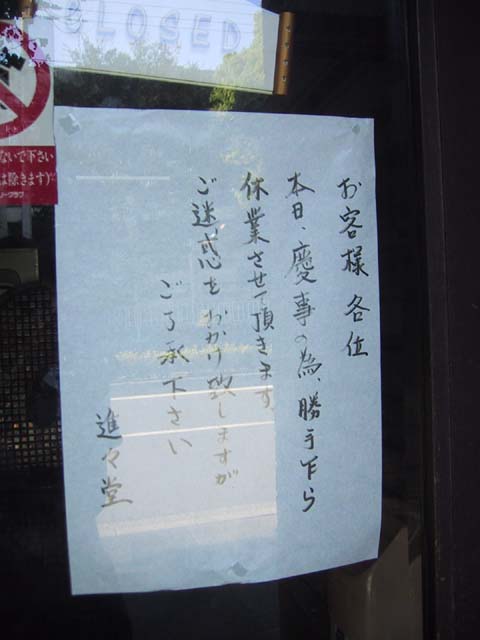 CLOSED
ないで下さい
は除きます)
お客様各位
本日、慶事の為、勝手乍ら
休業させて頂きます。
ご迷惑をおかけ致しますが
ご了承下さい
進々堂